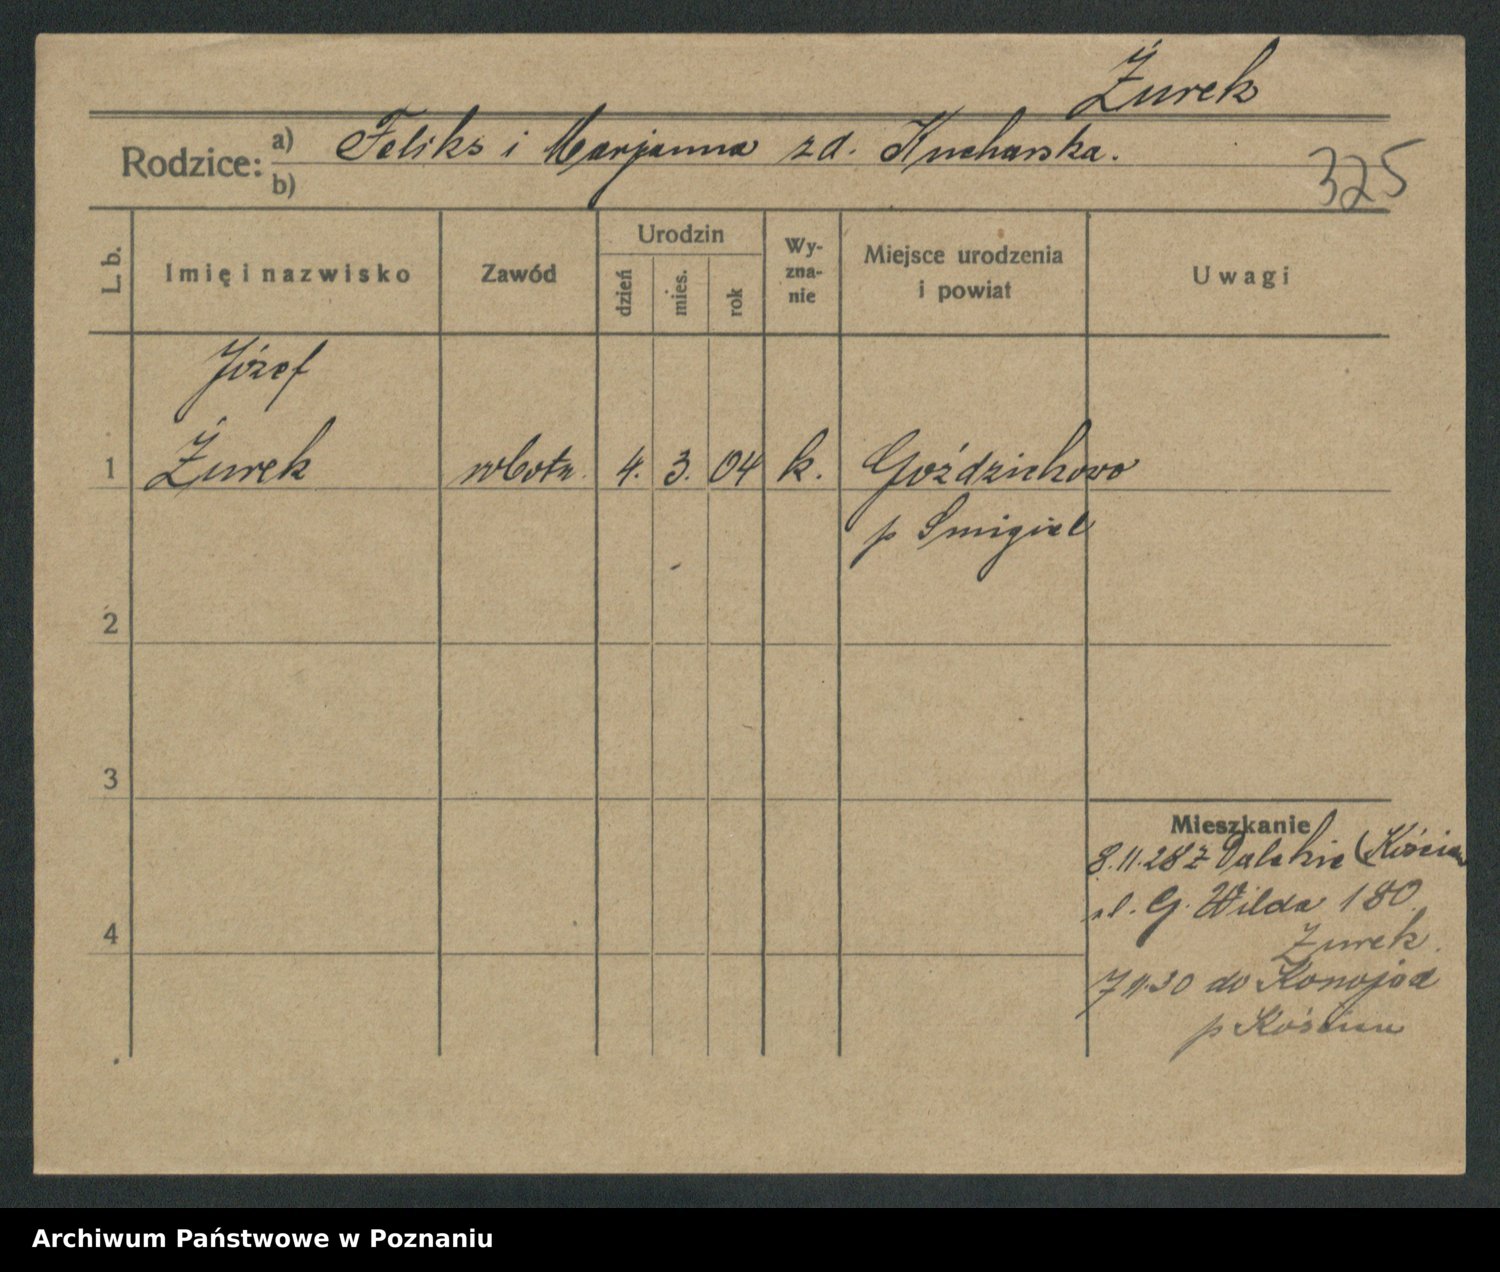 Żurek
Rodzice: a) Feliks i Marjanna zd. Kucharska.
b)
325
L. b.
Imię i nazwisko
Zawód
Urodzin
dzień
mies.
rok
Wy-
zna-
nie
Miejsce urodzenia
i powiat
Uwagi
Józef
1 Żurek robotn. 4. 3. 04 k. Goździchowo
p Smigiel
2
3
4
Mieszkanie
8.11.28 z Dalekie (Kościan
ul. G. Wilda 180
Żurek.
7 11.30 do Konojad
p Kościan
Archiwum Państwowe w Poznaniu